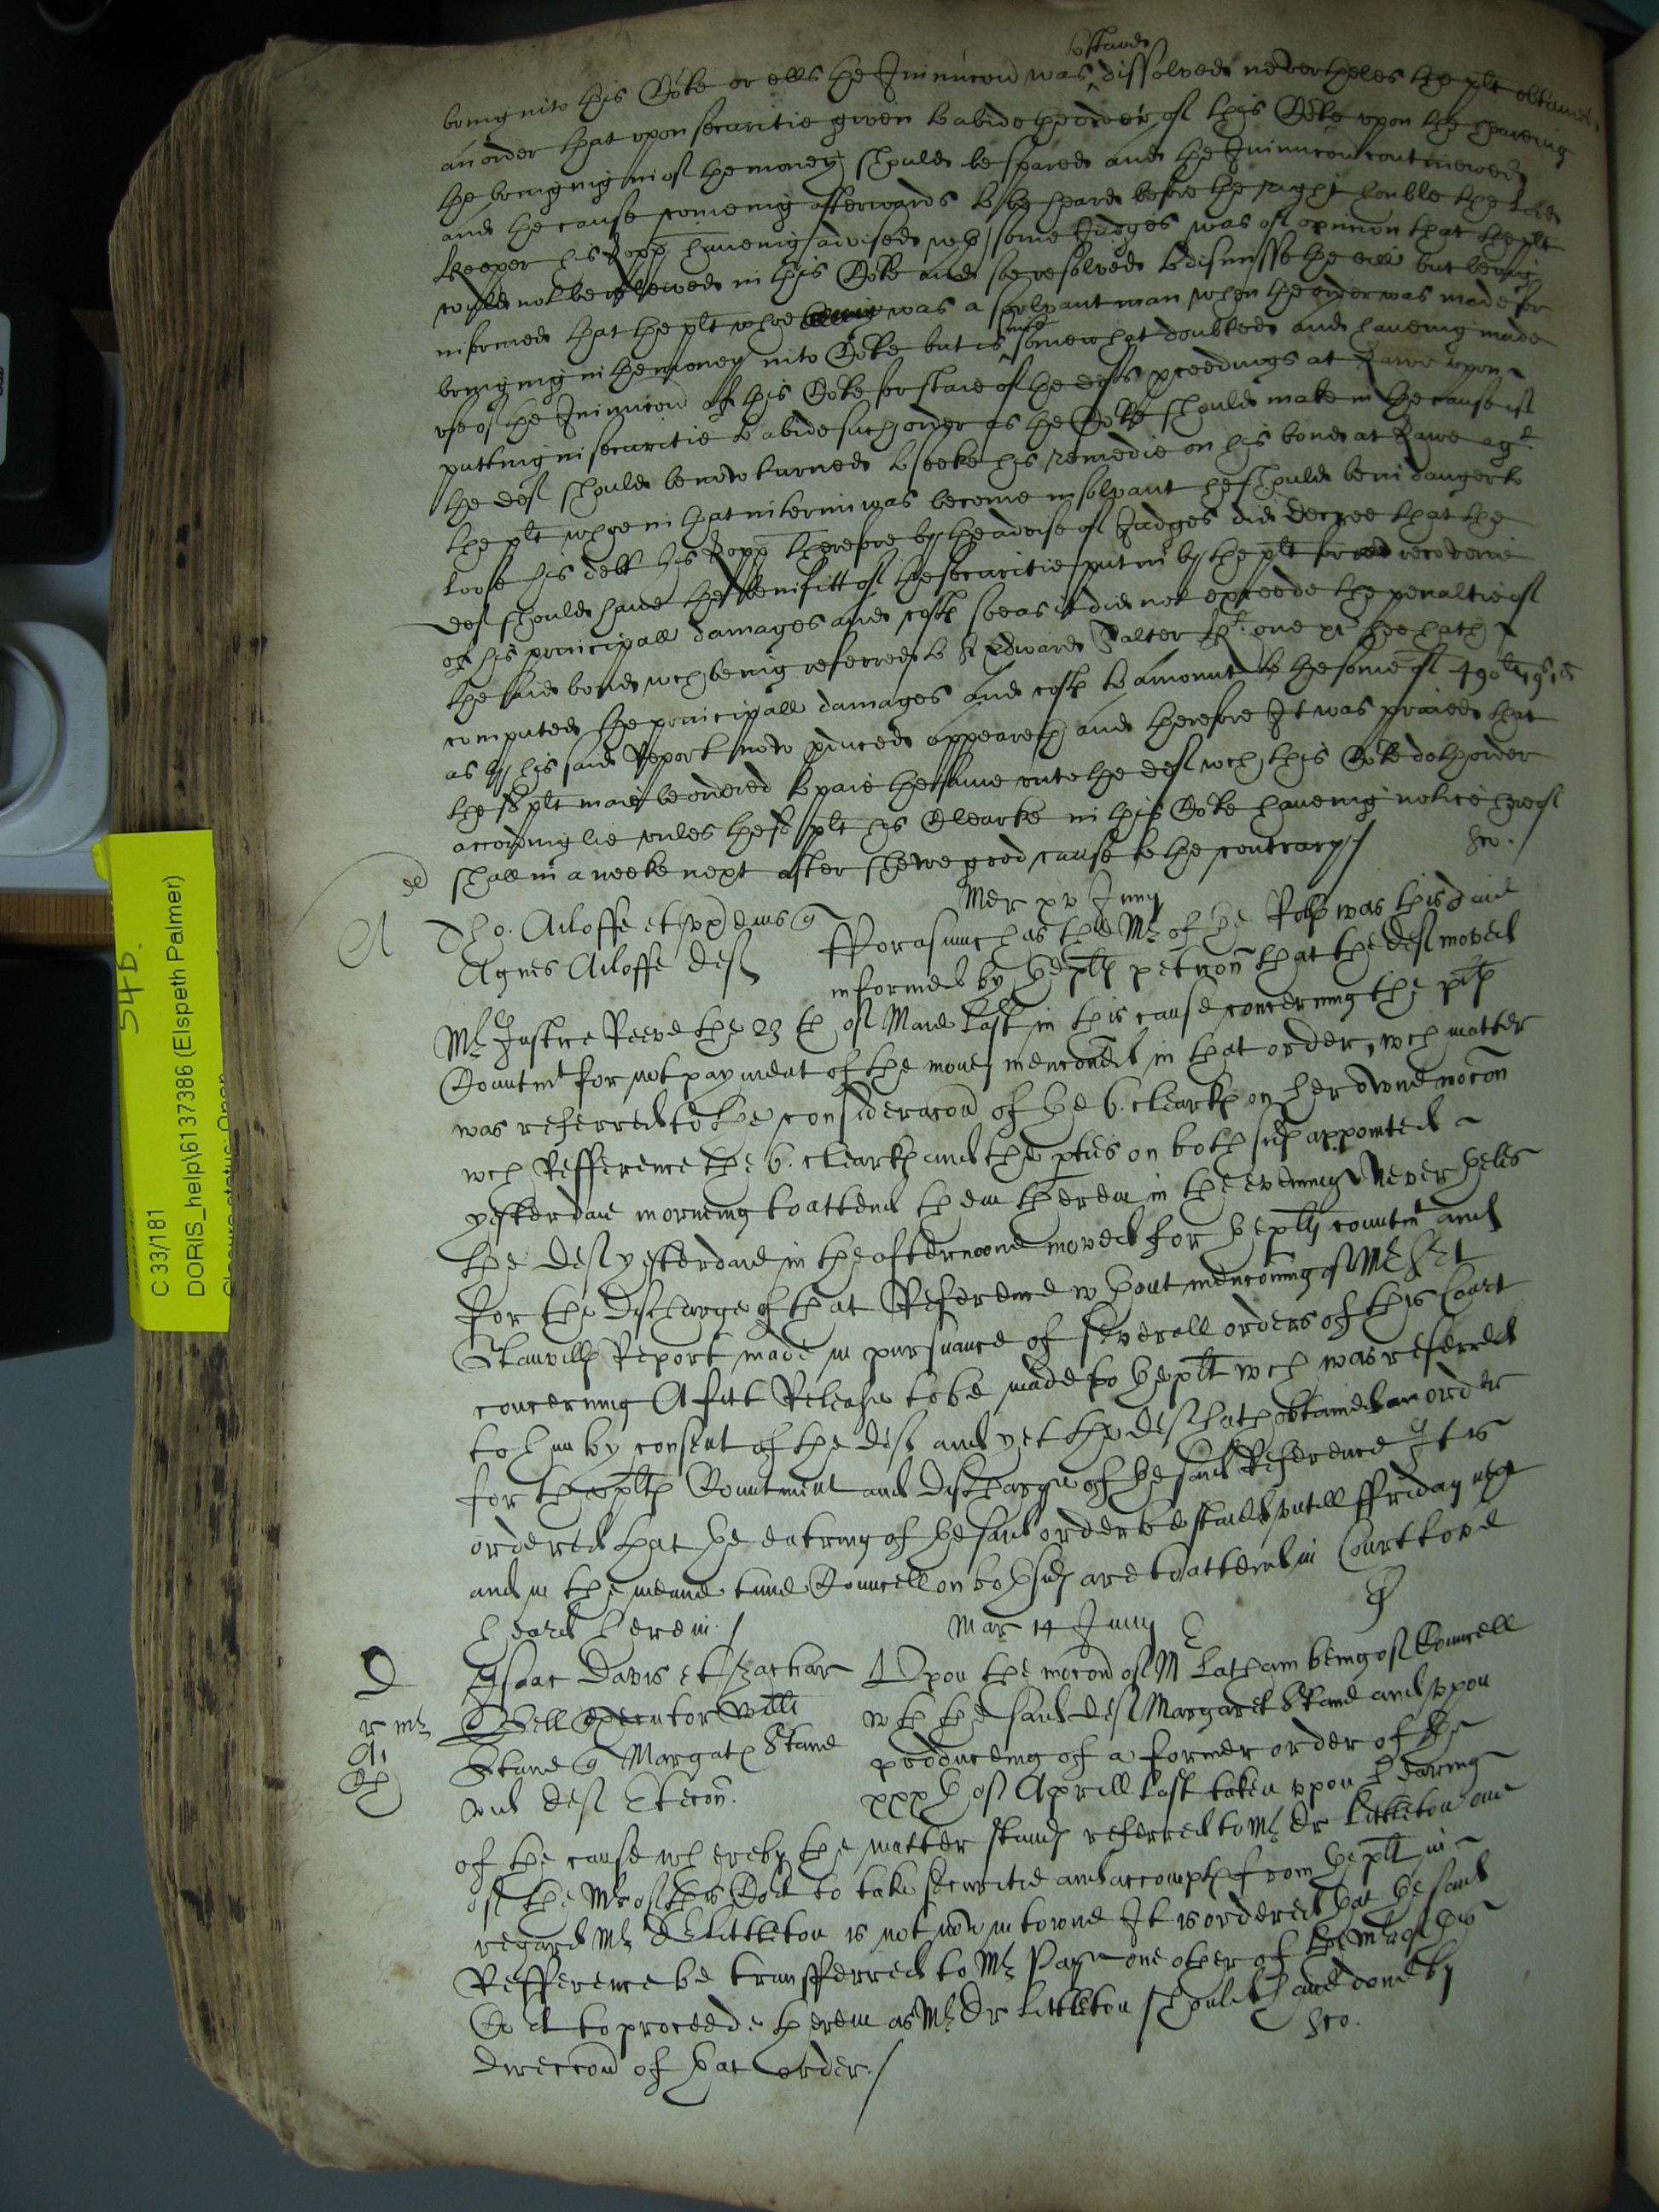 bring into this Co:te or ells the Iniunccon was ^to stand^ dissolved neverheles the plt obtained
an order that vpon securitie given to abide the order of this Co:te vpon the heareing
the bringing in of the money should be spared and the Iniunccon contineweed
and the cause comeing afterwards to be heard before the right honble the Lord
Keeper his Lopp haveing advised wth some Iudges was of opinion that the plt
could not be releeved in this Co:te and soe resolved to dismisse the bill but being
informed that the plt whoe was a solvant man when the order was made for
bringing in the money into Co:te but is ^since^ somewhat doubted and haveing made
vse of the Iniunccon of this Co:te for staie of the defts pceedings at Lawe vpon
putting in securitie to abide such order as the Co:te should make in the cause if
the deft should be now turned to seeke his remedie on his bond at Lawe agt
the plt whoe in that interim was become insolvant he should be in danger to
loose his debt his Lopp therefore by the advise of Iudges did decree that the
deft should have the benifitt of the securitie put in by the plt for recoverie
of his principall damages and costs soe as it did not exceede the penaltie of
the said bond wch being referred to Sr Edward Salter Kt. one &c hee hath
computed the principall damages and costs to amount to the some of 490li 19s
as by his said Report now pduced appeareth and therefore It was praied that
the sd plt maie be ordered to paie the same vnto the deft wch this Co:te doth order
accordinglie vnles the sd plt his Clearke in this Co:te haveing notice hereof
shall in a weeke next after shewe good cause to the contrary /
Mer xv Iunij
A Tho. Ailoffe et vx quer
Agnes Ailoffe deft
Fforasmuch as the Mr of the Rolls was this daie
informed by the plts peticon that the deft moved
Mr Iustice Reeve the 23 th of Maie last in this cause concerning the plts
Comitmt for not payment of the money mencioned in that order, wch matter
was referred to the consideracon of the 6. clearks on her owne mocon
wch Refference the 6. clearks and the pties on both sides appointed
yesterdaie morning to attend them therein in the evening Neverheles
the deft yesterdaie in the afternoone moved for the plts comitmt and
for the discharge of that Reference wthout mencioning of Mr Srt
Glanvills Report made in pursuance of severall orders of this Court
concerning A fitt Release to be made to the plt wch was referred
to him by consent of the deft and yet the deft hath obtained an order
for the plts Comitment and discharge of the said Reference It is
ordered that the entring of the said order be staied vntill ffriday next
and in the meane time Councell on both sides are to attend in Court to be
heard herein /
Mar 14 Iunij
D Isaac Davis et Zachar
Sell executor Willi
Stane Margaret Stane
vid deft
Vpon the mocon of Mr Latham being of Councell
wth the said deft Margaret Stane and vpon
produceing of a former order of the
xxxth of Aprill last taken vpon hearing
of the cause whereby the matter stands referred to Mr Dr Littleton one
of the Mrs of this Co:rt to take securitie and accompts from the plt in
regard Mr Dr Littleton is not now in towne It is ordered that the said
Refference be transfferred to Mr Page one other of the Mrs of this
Co:rt to proceede therein as Mr Dr Littleton should have done by
direccon of that order /
54b.
C 33/181
DORIS_help\6137386 (Elspeth Palmer)